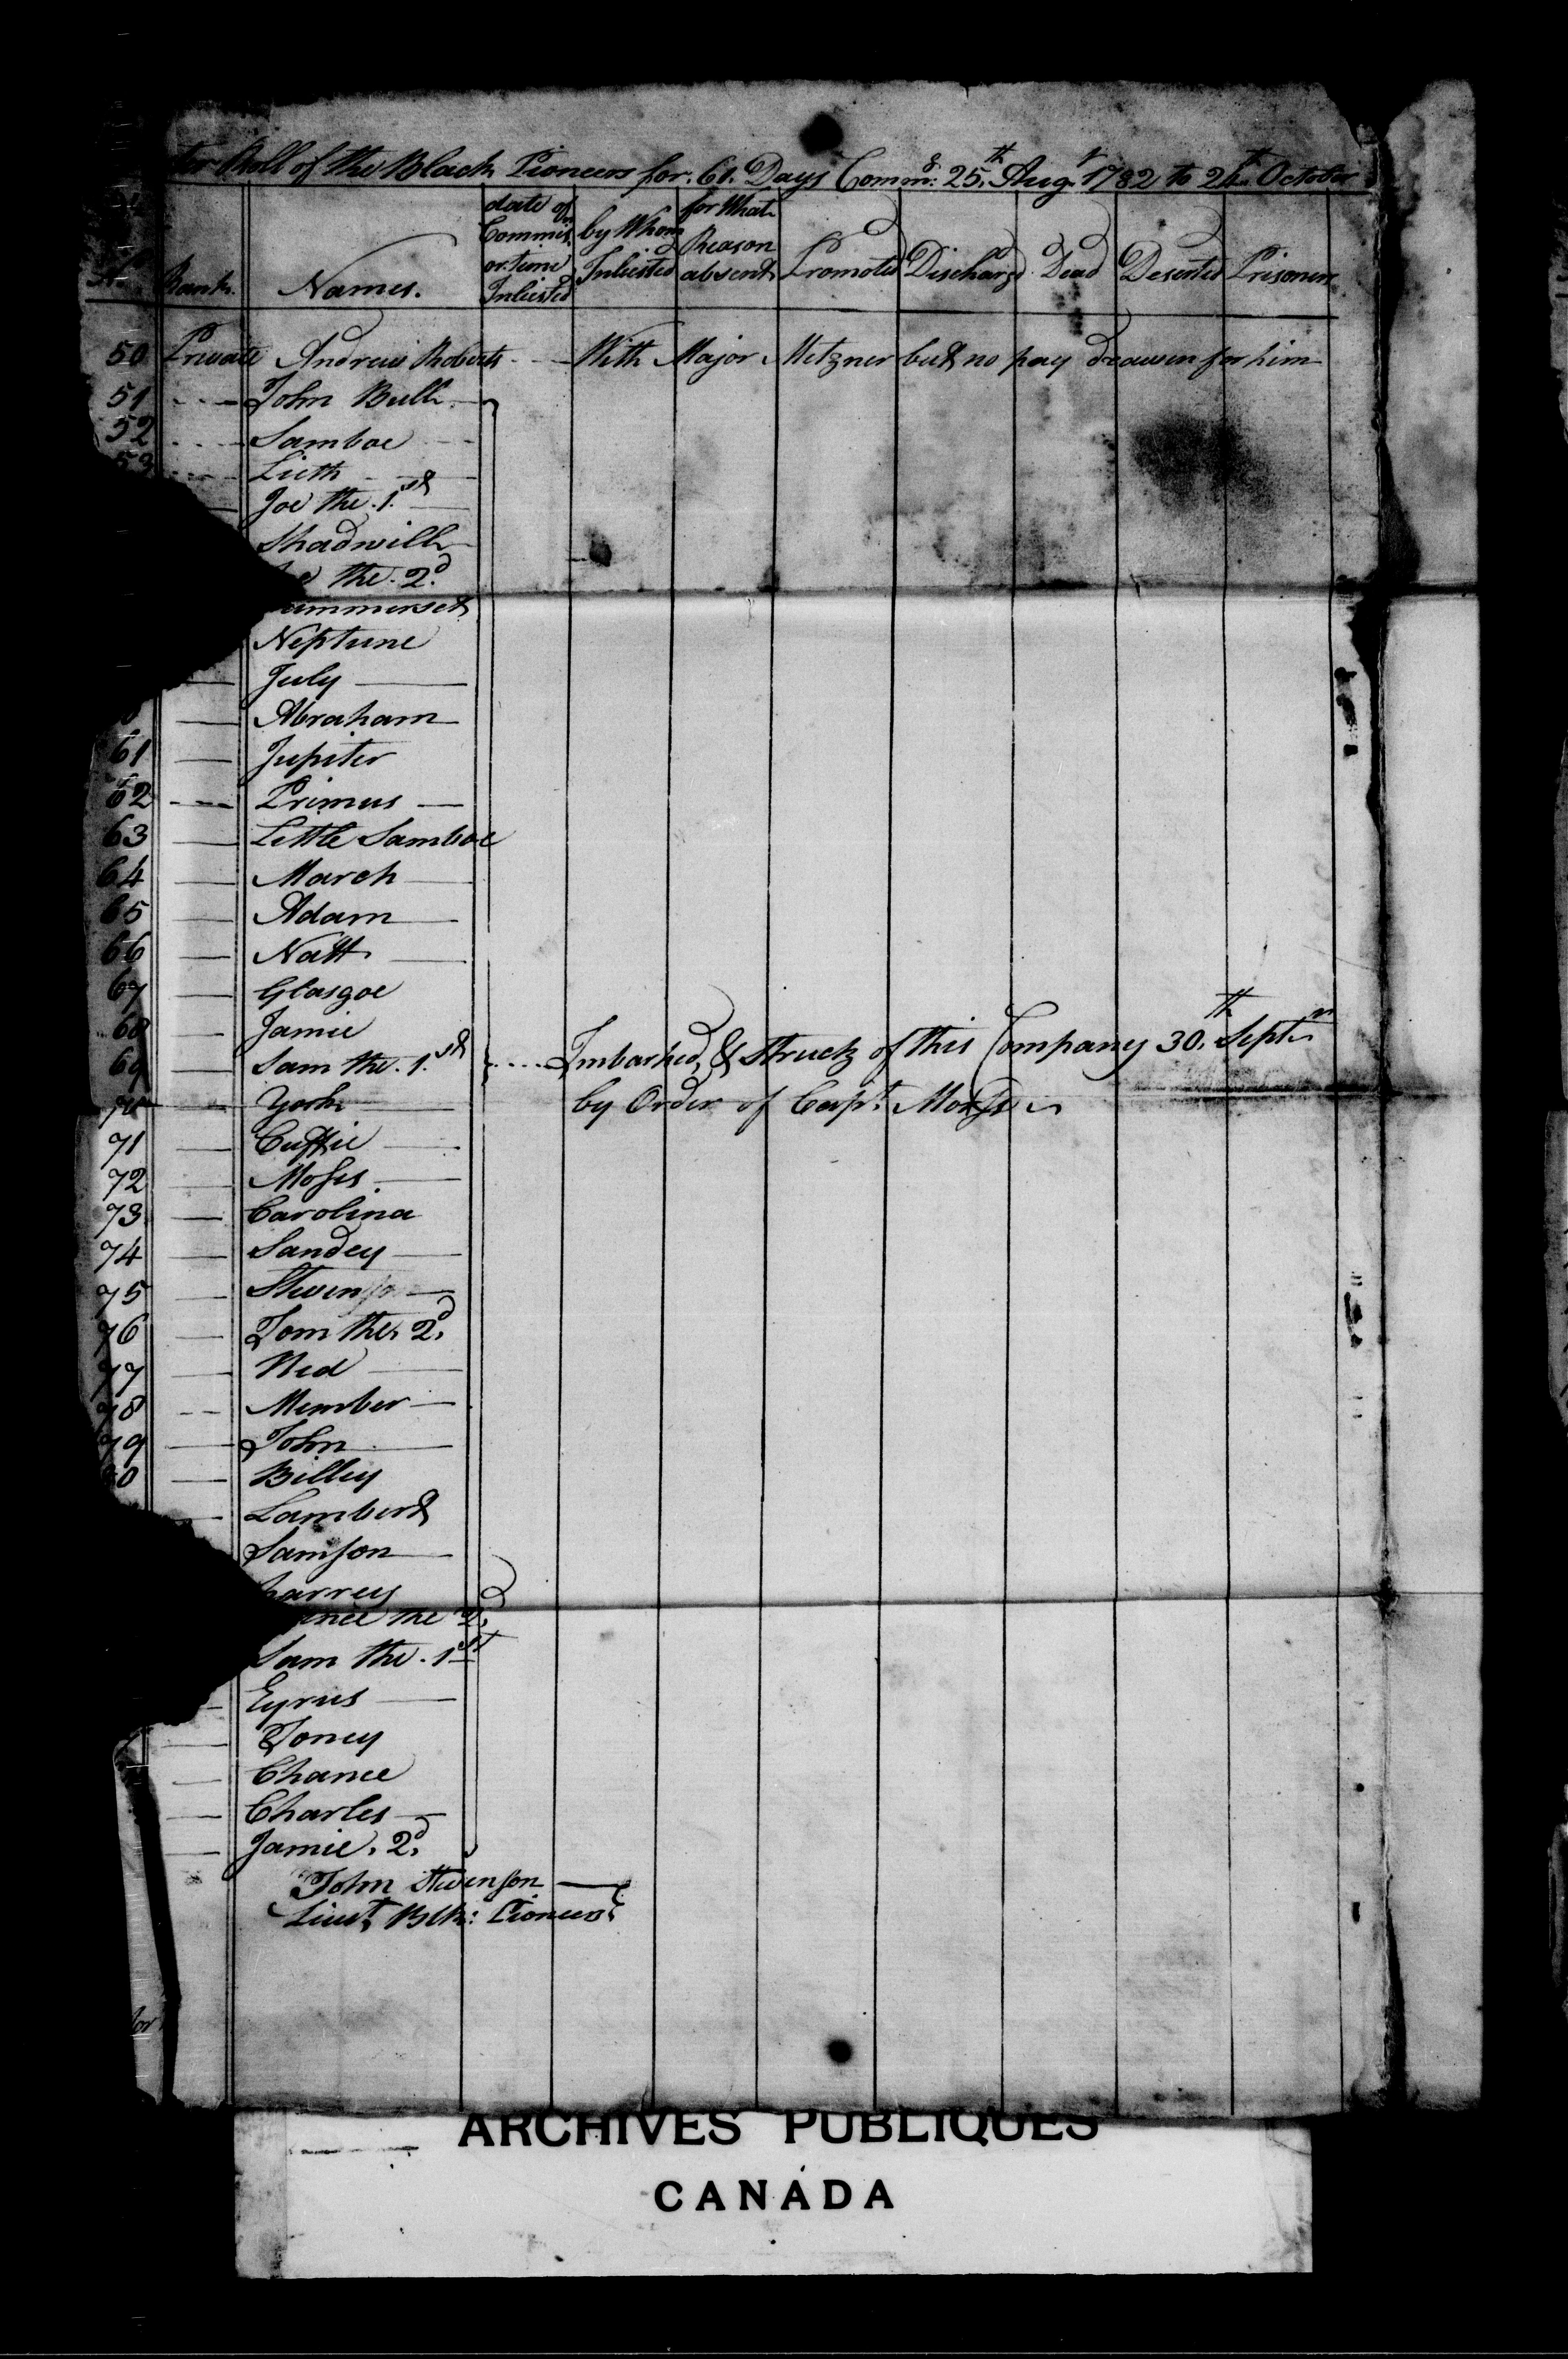 Roll of the Black Pioneers for 61 Days Comm.g 25.th Aug.t 1782 to 24th October
Rank. Names. date of Commis.n or time Inlisted by Whom Inlisted for What Reason absent Promoted Discharg.d Dead Deserted Prisoners
50 Private Andrew Roberts With Major Metzner but no pay drawen for him
51 John Bull
52 Samboe
53 Lieth
Joe the 1.st
Shadwill
the 2.d
ummerset
Neptune
July
Abraham
61 Jupiter
62 Primus
63 Little Samboe
64 March
65 Adam
66 Natt
67 Glasgoe
68 Jamie
69 Sam the 1.st Imbarked, & Struck of this Company 30.th Septm
70 York by Order of Capt.
71 Cuffie
72 Moses
73 Carolina
74 Sandey
75 Steven
76 Tom the 2.d
77 Ned
78 Member
79 John
80 Billey
Lambert
Samson
harrey
ince the 2.d
Sam the 1st
Cyrus
Toney
Chance
Charles
Jamie 2.d
John Stevenson
Lieut Blk: Pioneers
ARCHIVES PUBLIQUES
CANADA